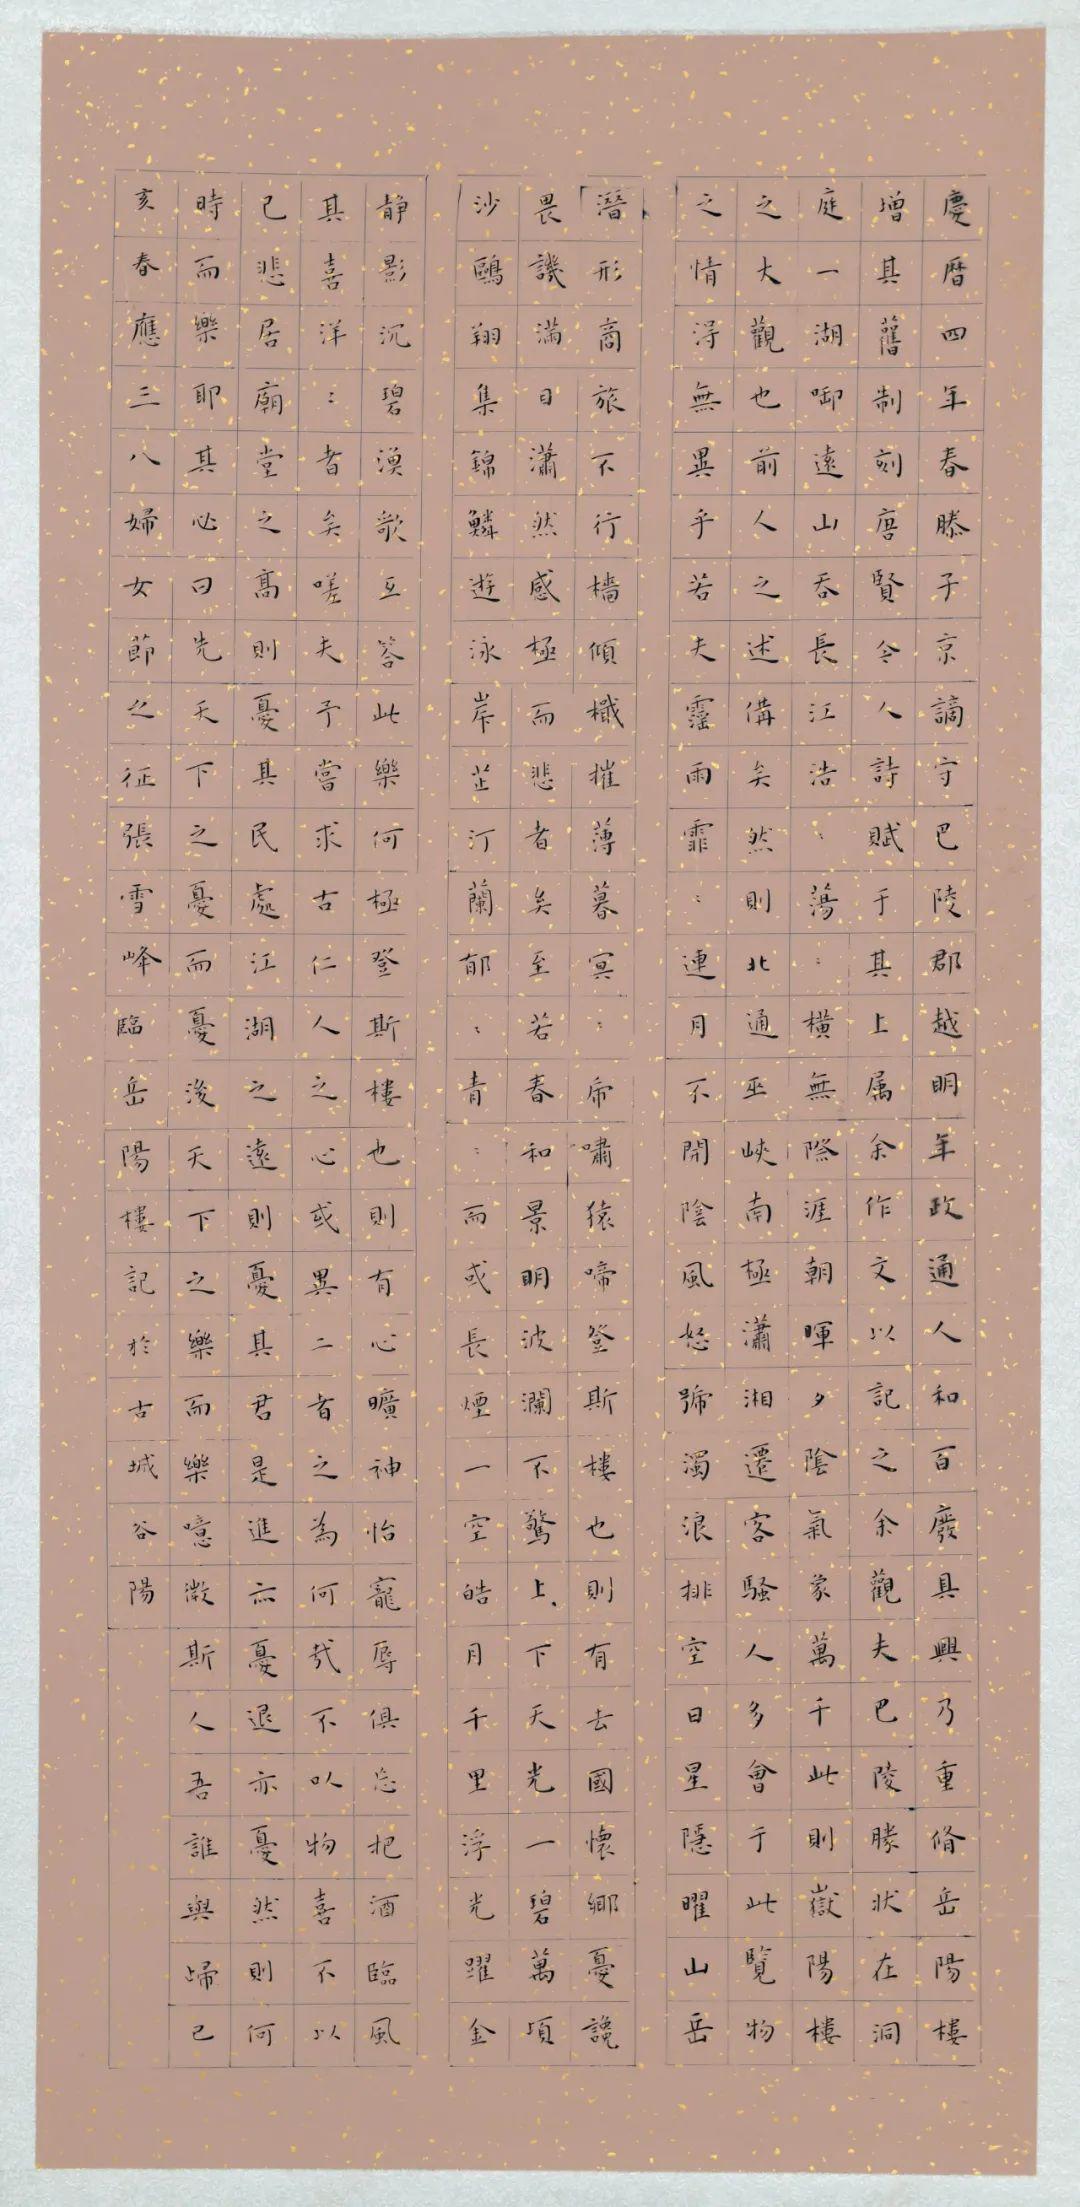 慶曆四年春滕子京謫守巴陵郡越明年政通人和百廢具興乃重脩岳陽樓
增其舊制刻唐賢令人詩賦于其上属余作文以記之余觀夫巴陵勝狀在洞
庭一湖啣遠山吞長江浩:蕩:橫無際涯朝暉夕陰氣象萬千此則嶽陽樓
之大觀也前人之述備矣然則北通巫峽南極瀟湘遷客騷人多會于此覽物
之情淂無異乎若夫霪雨霏:連月不開陰風怒號濁浪排空日星隱曜山岳
潛形商旅不行檣傾檝摧薄暮冥:帍嘯猿啼登斯樓也則有去國懷鄉憂讒
畏譏滿目瀟然感極而悲者矣至若春和景明波瀾不驚上下天光一碧萬頃
沙鷗翔集錦鱗遊泳岸芷汀蘭郁:青:而或長煙一空皓月千里浮光躍金
靜影沉碧漁歌互答此樂何極登斯樓也則有心曠神怡寵辱俱忘把酒臨風
其喜洋:者矣嗟夫予嘗求古仁人之心或異二者之為何哉不以物喜不以
己悲居廟堂之高則憂其民處江湖之遠則憂其君是進亦憂退亦憂然則何
時而樂耶其必曰先天下之憂而憂後天下之樂而樂噫微斯人吾誰與歸己
亥春應三八婦女節之征張雪峰臨岳陽樓記於古城谷陽